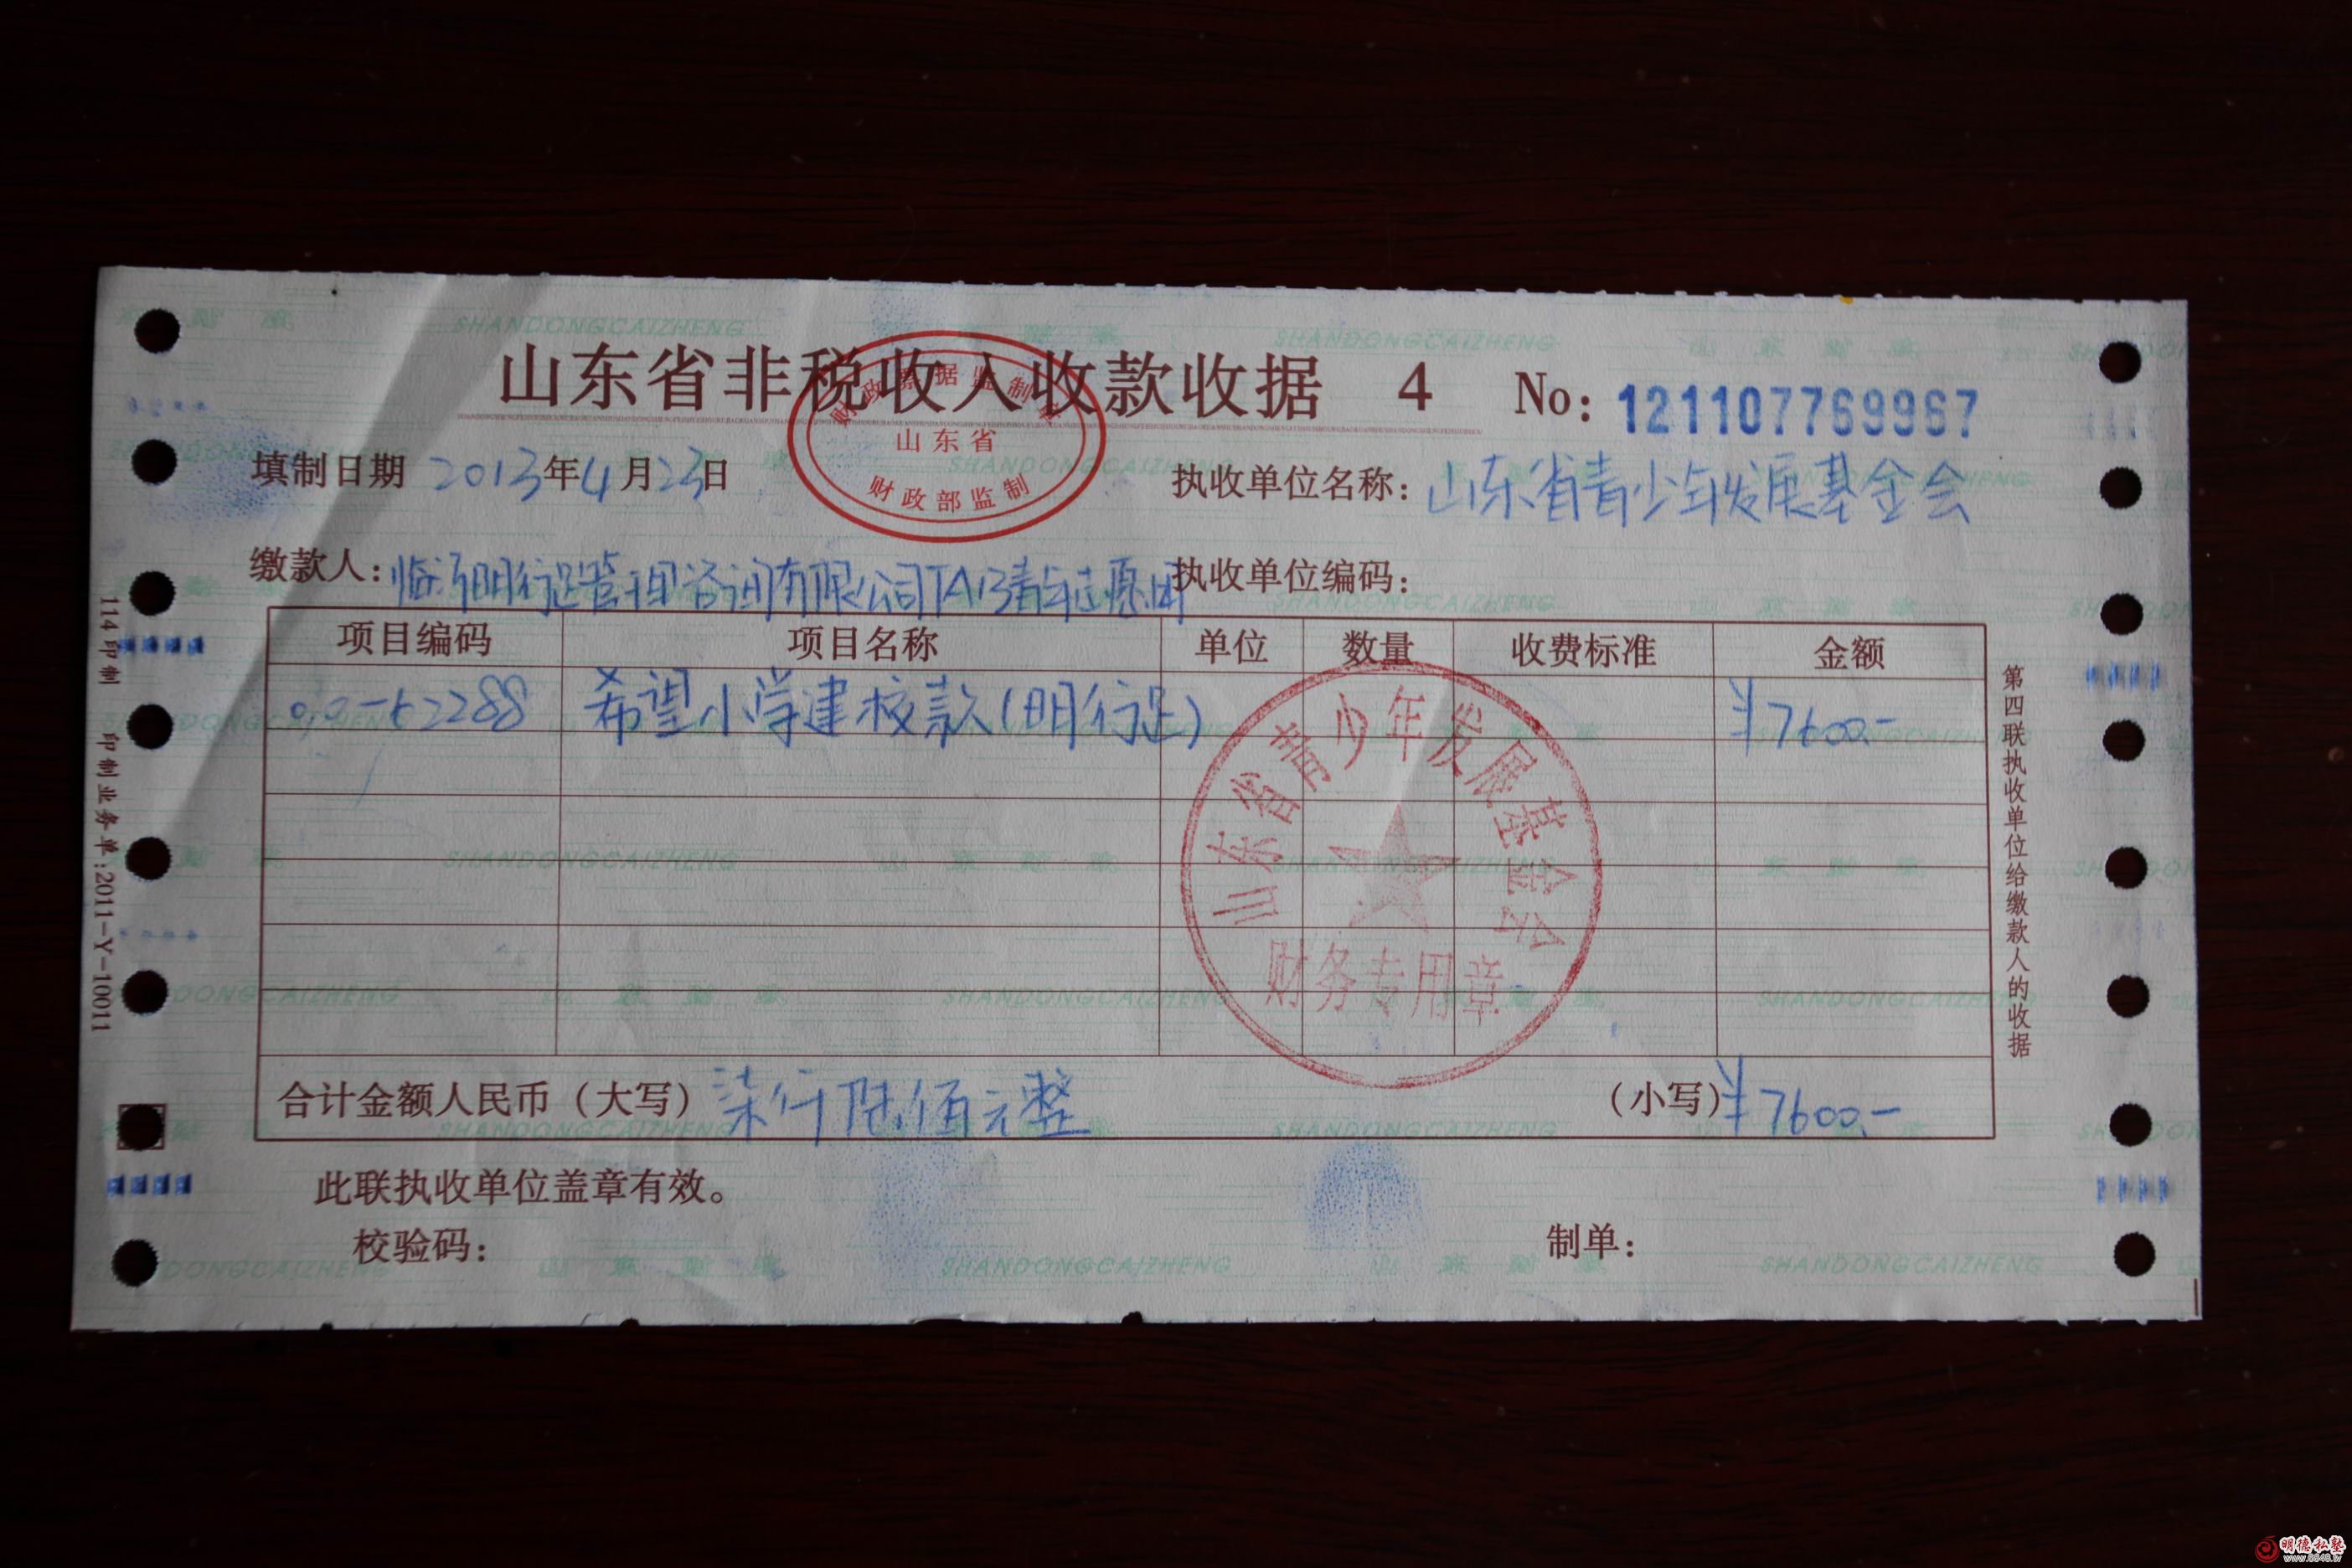 山东省非税收入收款收据 4 No: 121107769967
财政票据监制章
山东省
财政部监制
填制日期 2013年4月23日 执收单位名称: 山东省青少年发展基金会
缴款人: 临沂明行足管理咨询有限公司TA13青年志愿团 执收单位编码:
项目编码 项目名称 单位 数量 收费标准 金额
2288 希望小学建校款(明行足) ¥7600.-
山东省青少年发展基金会
财务专用章
合计金额人民币(大写) 柒仟陆佰元整 (小写) ¥7600.-
此联执收单位盖章有效。
校验码: 制单:
第四联执收单位给缴款人的收据
114印制 印制业务单:2011-Y-10011
SHANDONGCAIZHENG
明德私塾